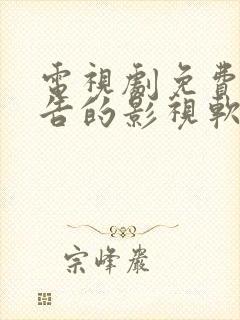 電視劇免費
告的影視軟
宗峰嚴